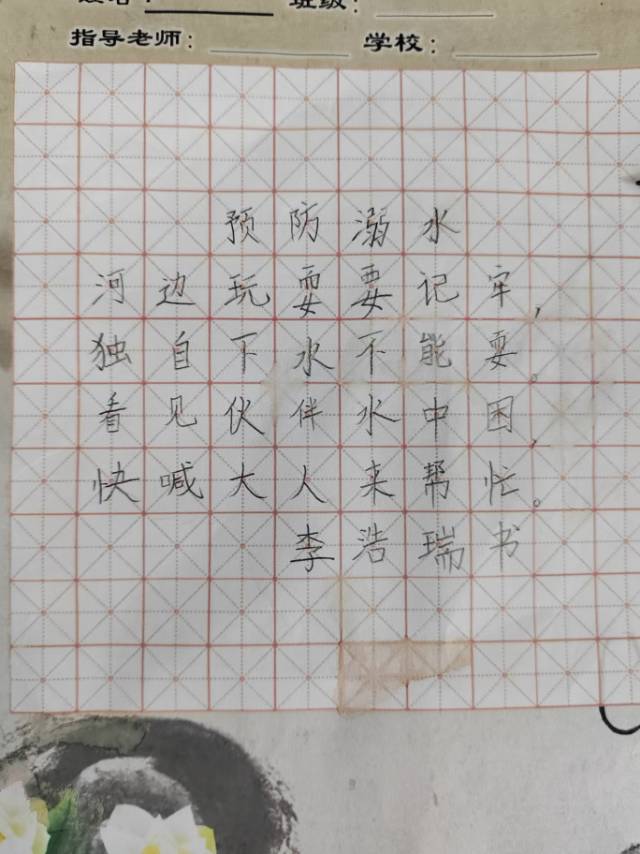 班级：
指导老师： 学校：
预防溺水
河边玩耍要记牢，
独自下水不能耍。
看见伙伴水中困，
快喊大人来帮忙。
李浩瑞书